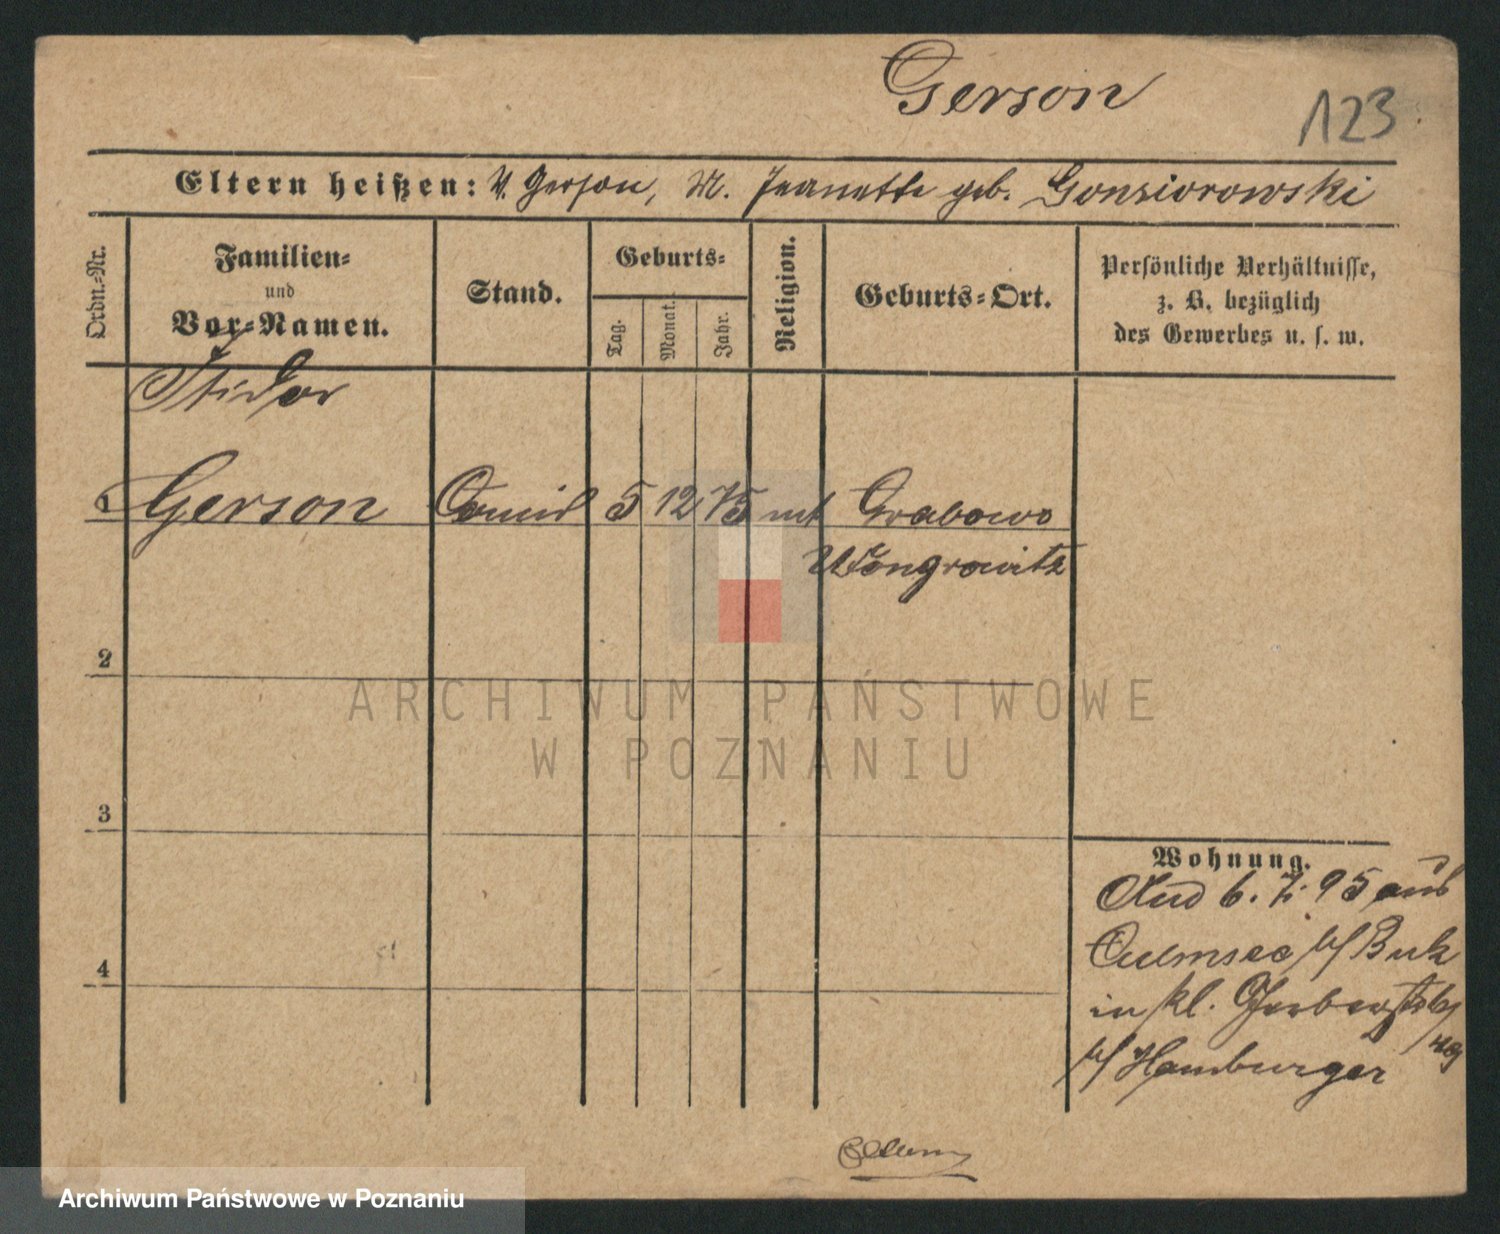 Gerson
123
Eltern heißen: V. Gerson, M. Jeanette geb. Gonsiorowski
Ordn.-Nr.
Familien-
und
Vor-Namen.
Stand.
Geburts-
Tag.
Monat.
Jahr.
Religion.
Geburts-Ort.
Persönliche Verhältnisse,
z. B. bezüglich
des Gewerbes u. s. w.
Isidor
1 Gerson Comis 5 12 75 Grabowo
Wongrowitz
2
3
4
ARCHIWUM PAŃSTWOWE
W POZNANIU
Wohnung.
6. 7. 95 aus
Culmsee b/ Buk
in kl. Gerberstr
b/ Hamburger
Archiwum Państwowe w Poznaniu